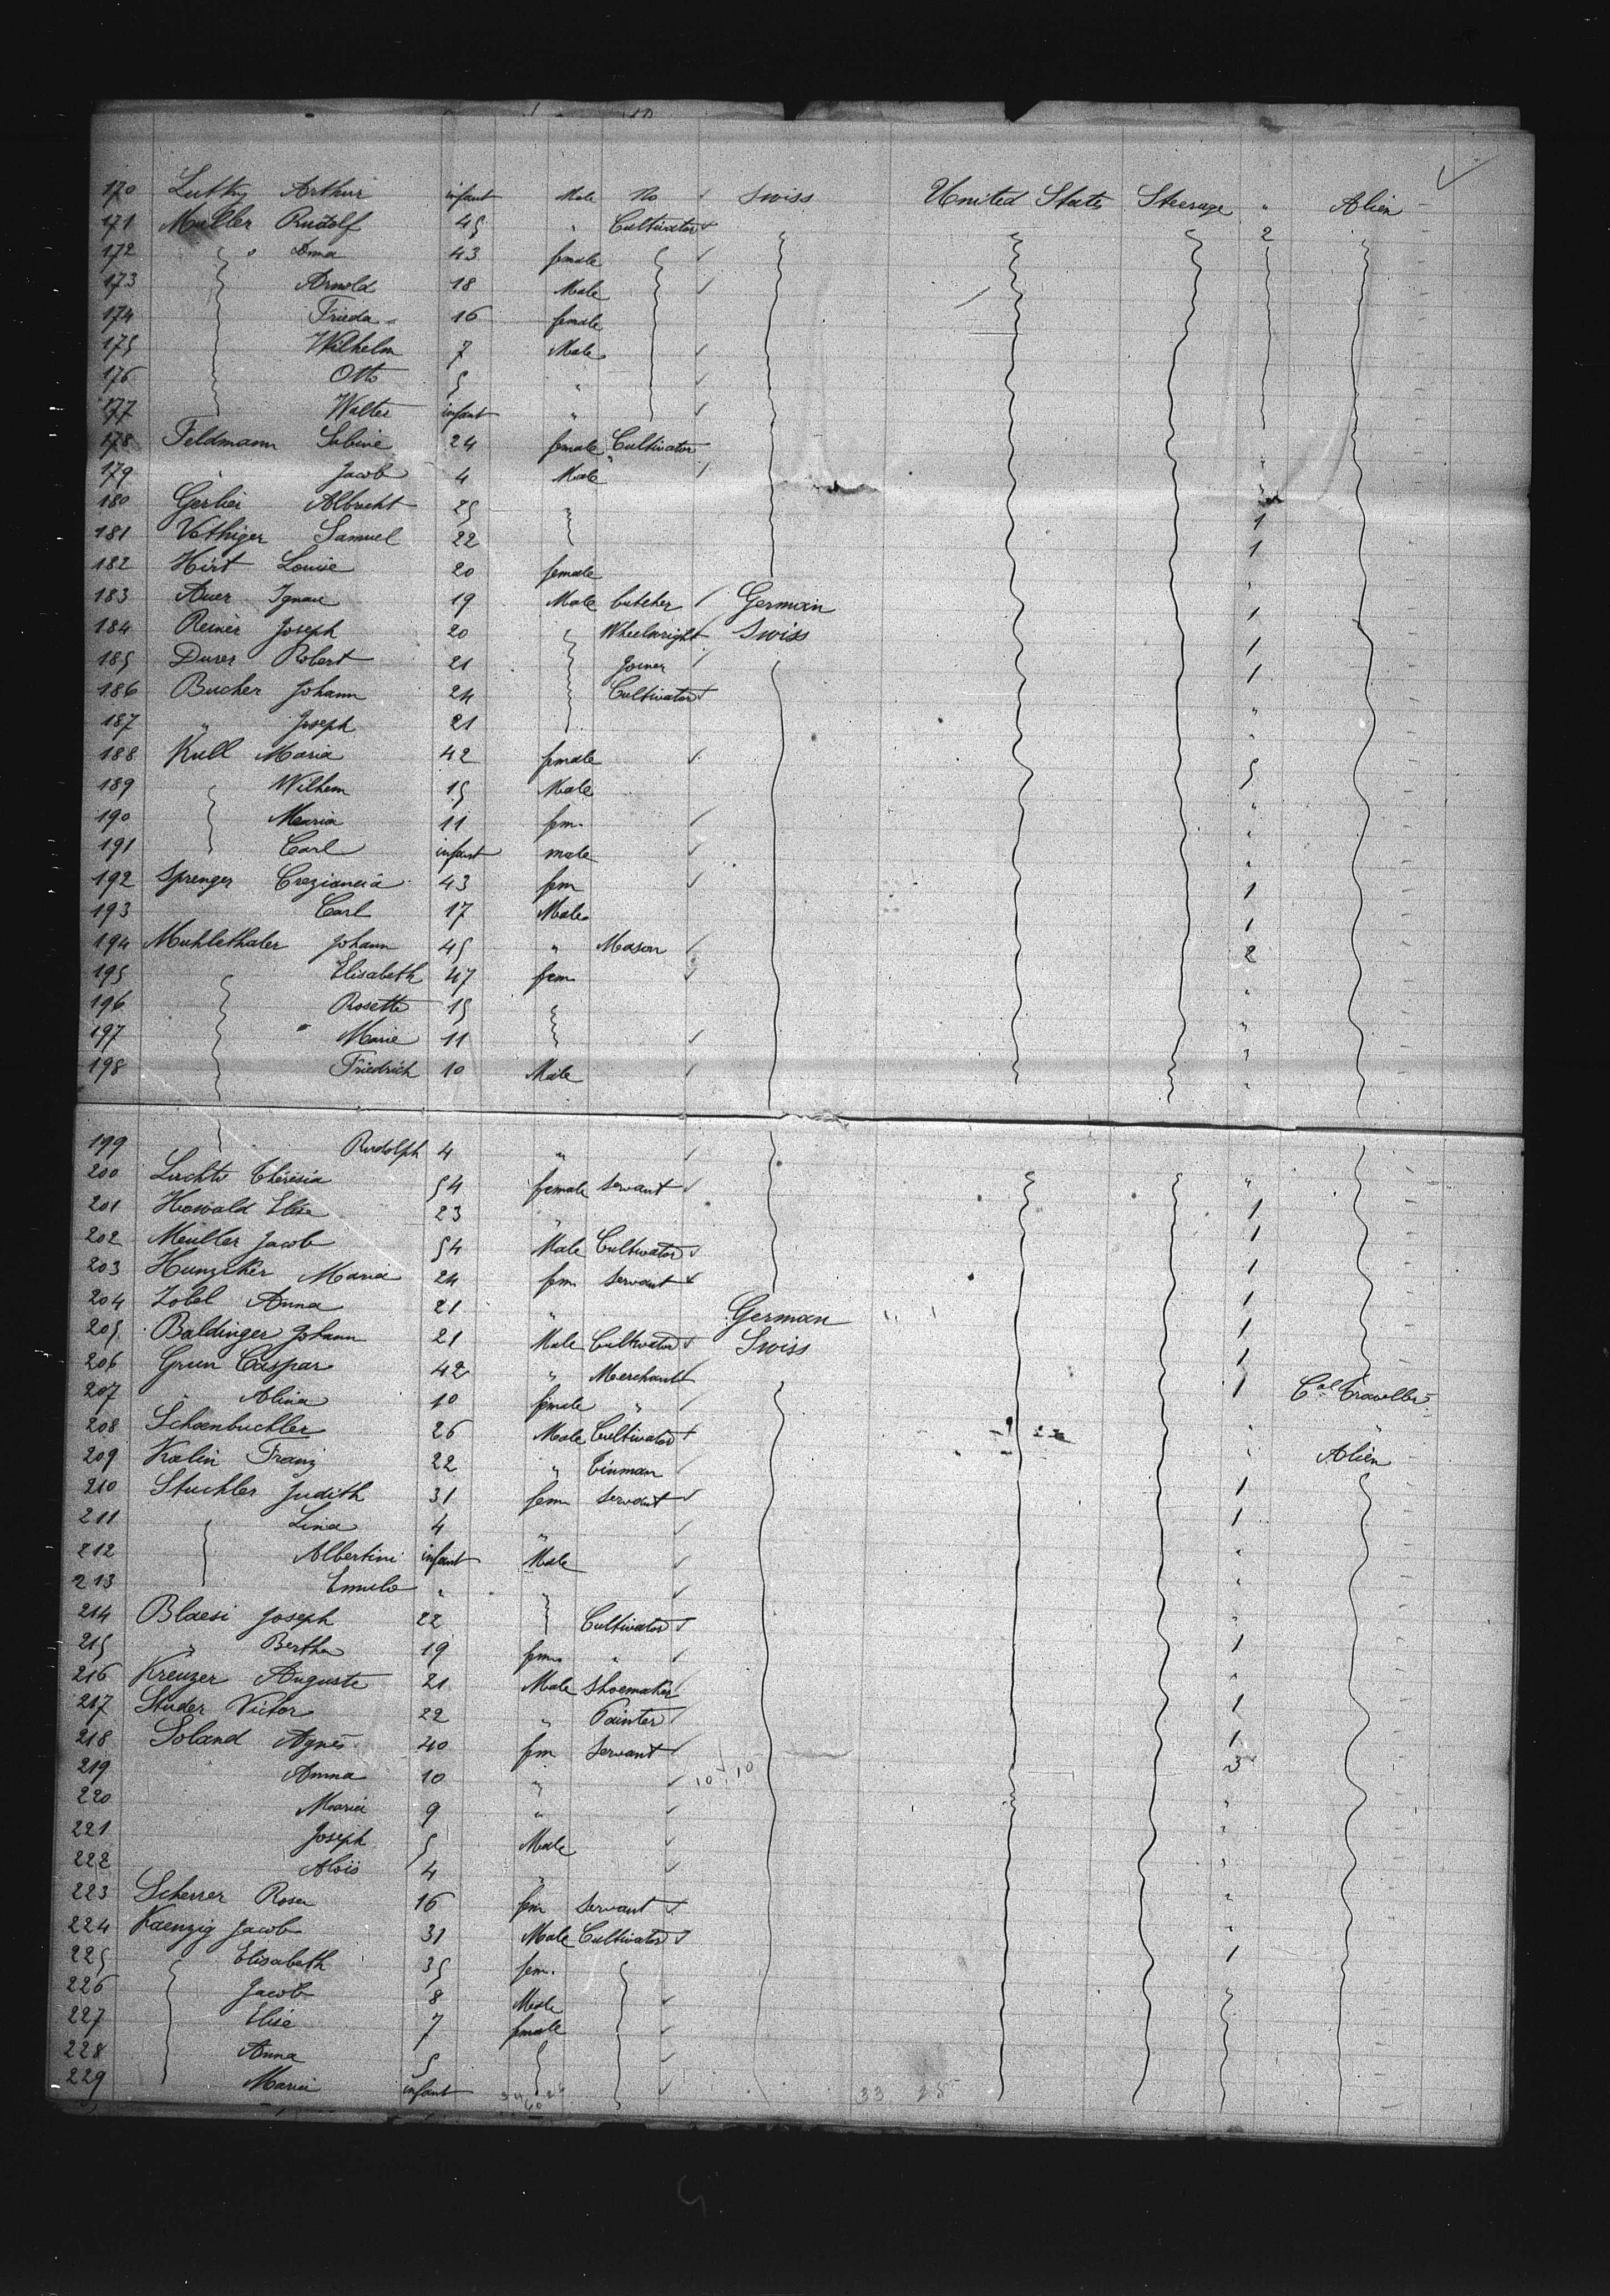 170 Lutky Arthur infant Male No Swiss United States Steerage " Alien
171 Muller Rudolf 45 " Cultivator 2
172 " Anna 43 female
173 Arnold 18 Male
174 Frieda 16 female
175 Wilhelm 7 Male
176 Otto 5 "
177 Walter infant "
178 Feldmann Sabine 24 female Cultivator
179 " Jacob 4 Male "
180 Gerber Albrecht 25 1
181 Vothiger Samuel 22 1
182 Hirt Louise 20 female "
183 Auer Ignau 19 Male butcher German 1
184 Reiner Joseph 20 Wheelwright Swiss 1
185 Durer Robert 21 Joiner 1
186 Bucher Johann 24 Cultivator "
187 " Joseph 21 "
188 Kull Maria 42 female 5
189 Wilhem 15 Male "
190 Maria 11 fem. "
191 Carl infant male "
192 Sprenger Creziancia 43 fem 1
193 Carl 17 Male 1
194 Muhlethaler Johann 45 " Mason 2
195 Elisabeth 47 fem "
196 Rosette 15 "
197 " Marie 11 "
198 Friedrich 10 Male "
199 Rudolph 4 "
200 Luchti Thérésia 54 female servant "
201 Howald Elise 23 " 1
202 Meuller Jacob 54 Male Cultivator 1
203 Hunziker Maria 24 fem servant 1
204 Zobel Anna 21 " German 1
205 Baldinger Johann 21 Male Cultivator Swiss 1
206 Grun Caspar 42 " Merchant 1
207 " Alina 10 female " 1 Cal Traveller
208 Schoenbuchler 26 Male Cultivator " "
209 Kalin Franz 22 " Tinman " Alien
210 Stuchler Judith 31 fem servant 1
211 Lina 4 " 1
212 Albertini infant Male "
213 Emile " " "
214 Blaesi Joseph 22 Cultivator "
215 " Bertha 19 fem " 1
216 Kreuzer Auguste 21 Male Shoemaker "
217 Studer Victor 22 " Painter 1
218 Soland Agnes 40 fem Servant 1
219 Anna 10 " 10 10 3
220 Maria 9 " "
221 Joseph 5 Male "
222 Aloïs 4 " "
223 Scherrer Rosa 16 fem Servant "
224 Kaenzig Jacob 31 Male Cultivator "
225 Elisabeth 35 fem. 1
226 Jacob 8 Male
227 Elise 7 female
228 Anna 5
229 Maria infant 33 25